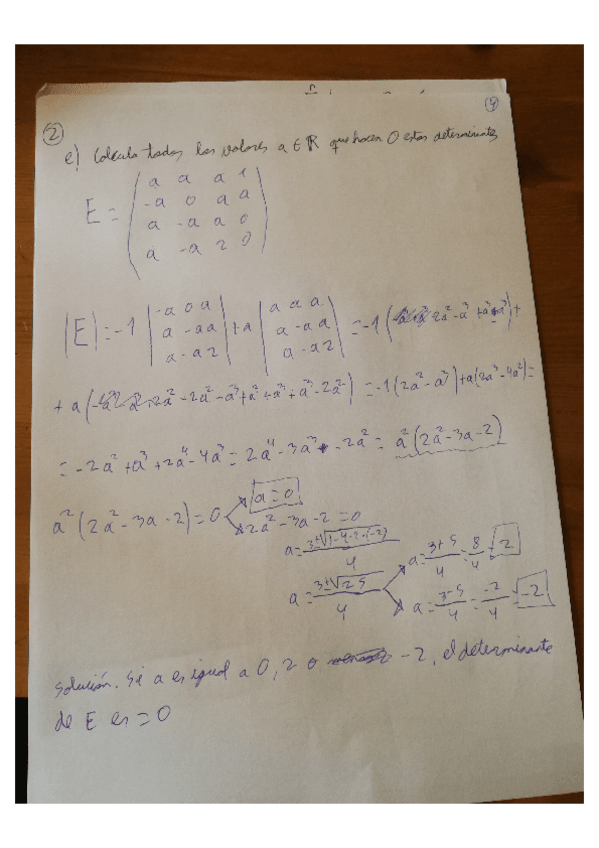 4
2
e) Calcula todos los valores a ∈ ℝ que hacen 0 estos determinantes
a a a 1
-a 0 a a
E =
a -a a 0
a -a 2 0
|E| = -1 | -a 0 a | + a | a a a | = -1 ( 2a² - a³ + a³ - a³) +
a -a a a -a a
a -a 2 a -a 2
+ a ( -2a² - a³ + a² + a³ + a³ - 2a² ) = -1 (2a² - a³) + a (2a³ - 4a²) =
= -2a² + a³ + 2a⁴ - 4a³ = 2a⁴ - 3a³ - 2a² = a² (2a² - 3a - 2)
a² (2a² - 3a - 2) = 0
a = 0
2a² - 3a - 2 = 0
a = 3±√ 4
a = 3±√25 4
a = 3+5 4 = 8 4 = 2
a = 3-5 4 = -2 4 = -2
Solución. Si a es igual a 0, 2 o -2, el determinante
de E es = 0